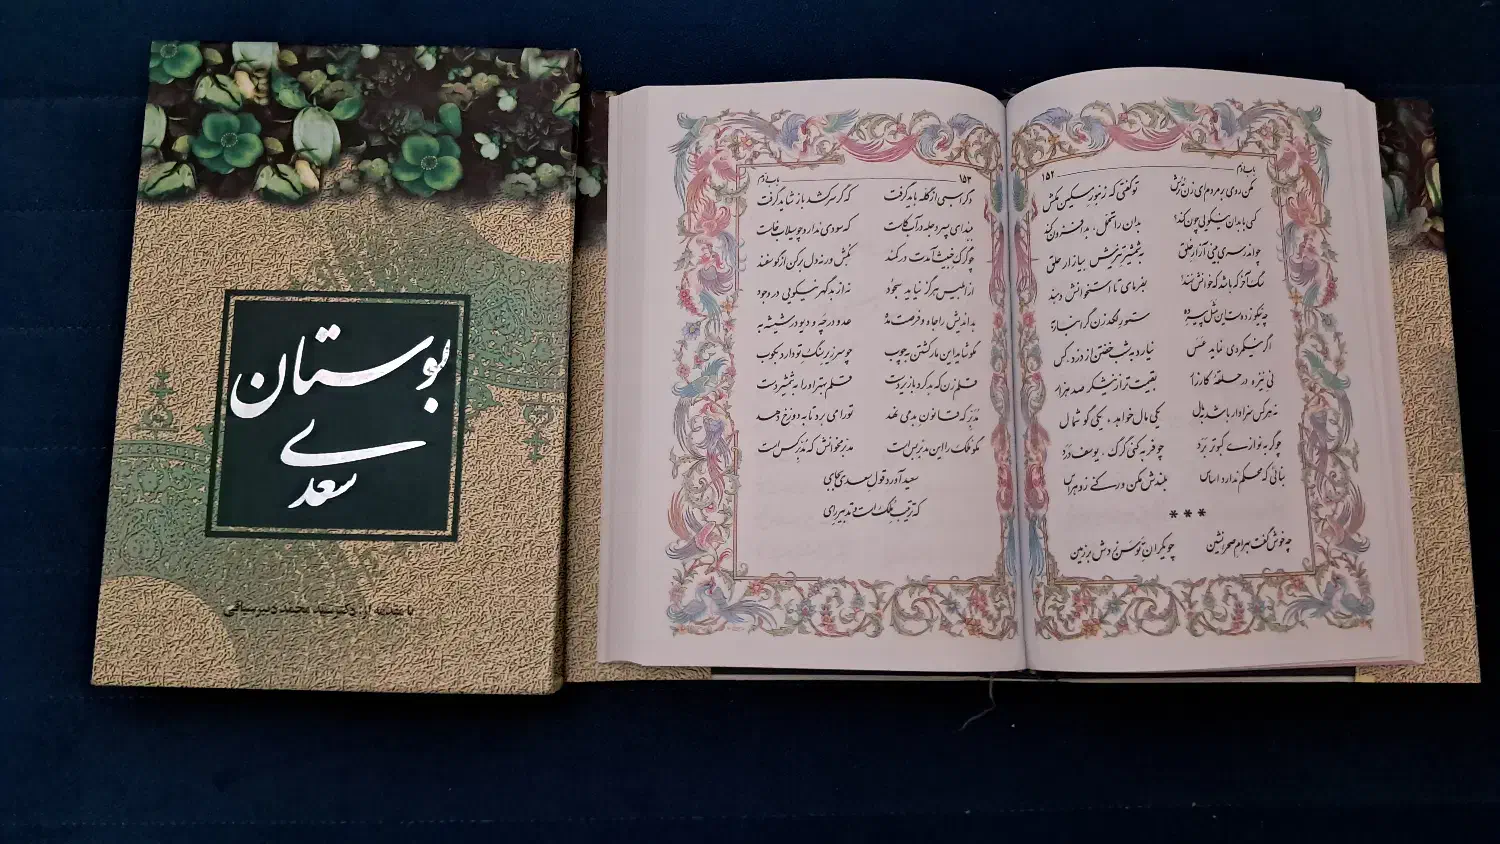 بوستان
سعدی
با مقدمه از: دکتر سید محمد دبیرسیاقی
باب دوم ۱۵۲
مکن روی بر مردم ای زن ترش تو گفتی که زنبور مسکین مکش
کسی با بدان نیکویی چون کند؟ بدان را تحمّل، بد افزون کند
چو اندر سری بینی آزار خلق به شمشیر تیزش بیازار حلق
سگ آخر که باشد که خوانش نهند؟ بفرمای تا استخوانش دهند
چه نیکو زده‌ست این مثل پیر ده ستور لگدزن گرانبار به
اگر نیکمردی نماید عسس نیارد به شب خفتن از دزد، کس
نی نیزه در حلقهٔ کارزار بقیمت‌تر از نیشکر صد هزار
نه هرکس سزاوار باشد به مال یکی مال خواهد، یکی گوشمال
چو گربه نوازی کبوتر برد چو فربه کنی گرگ، یوسف درد
بنائی که محکم ندارد اساس بلندش مکن ور کنی زو هراس
***
چه خوش گفت بهرام صحرانشین چو یکران توسن زدش بر زمین
۱۵۳ باب دوم
دگر اسبی از گله باید گرفت که گر سرکشد باز شاید گرفت
ببند ای پسر دجله در آب کاست که سودی ندارد چو سیلاب خاست
چو گرگ خبیث آمدت در کمند بکش ورنه دل برکن از گوسفند
از ابلیس هرگز نیاید سجود نه از بدگهر نیکویی در وجود
بداندیش را جاه و فرصت مده عدو در چه و دیو در شیشه به
مگو شاید این مار کشتن به چوب چو سر زیر سنگ تو دارد بکوب
قلم‌زن که بد کرد با زیردست قلم بهتر او را به شمشیر دست
مدبّر که قانون بد می‌نهد تو را می‌برد تا به دوزخ جهد
مگو ملک را این مدبّر بس است مدبّر مخوانش که مدبر کس است
سعید آورد قول سعدی بجای
که ترتیب ملک است و تدبیر رای